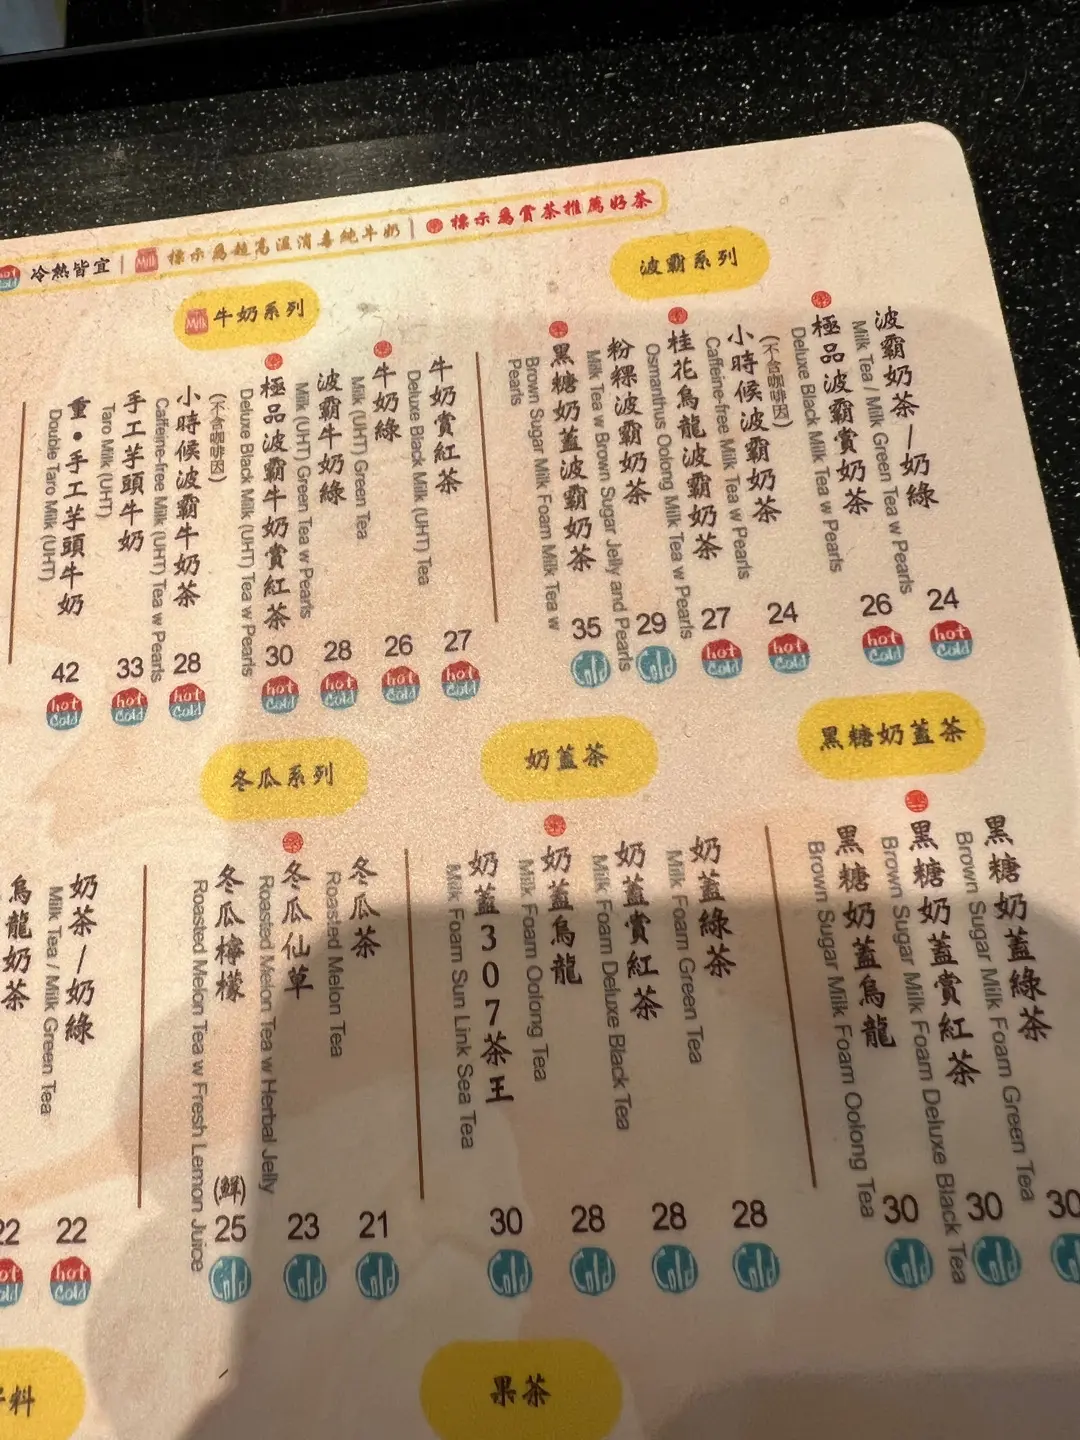 hot cold 冷熱皆宜 | Milk 標示為超高溫消毒純牛奶 | 標示為賞茶推薦好茶
波霸系列
波霸奶茶/奶綠
Milk Tea / Milk Green Tea w Pearls
24
hot cold
極品波霸賞奶茶
Deluxe Black Milk Tea w Pearls
26
hot cold
小時候波霸奶茶
(不含咖啡因)
Caffeine-free Milk Tea w Pearls
24
hot cold
桂花烏龍波霸奶茶
Osmanthus Oolong Milk Tea w Pearls
27
hot cold
粉粿波霸奶茶
Milk Tea w Brown Sugar Jelly and Pearls
29
Cold
黑糖奶蓋波霸奶茶
Brown Sugar Milk Foam Milk Tea w
Pearls
35
Cold
Milk 牛奶系列
牛奶賞紅茶
Deluxe Black Milk (UHT) Tea
27
hot cold
牛奶綠
Milk (UHT) Green Tea
26
hot cold
波霸牛奶綠
Milk (UHT) Green Tea w Pearls
28
hot cold
極品波霸牛奶賞紅茶
Deluxe Black Milk (UHT) Tea w Pearls
30
hot cold
小時候波霸牛奶茶
(不含咖啡因)
Caffeine-free Milk (UHT) Tea w Pearls
28
hot cold
手工芋頭牛奶
Taro Milk (UHT)
33
hot cold
重•手工芋頭牛奶
Double Taro Milk (UHT)
42
hot cold
黑糖奶蓋茶
黑糖奶蓋綠茶
Brown Sugar Milk Foam Green Tea
30
黑糖奶蓋賞紅茶
Brown Sugar Milk Foam Deluxe Black Tea
30
Cold
黑糖奶蓋烏龍
Brown Sugar Milk Foam Oolong Tea
30
Cold
奶蓋茶
奶蓋綠茶
Milk Foam Green Tea
28
Cold
奶蓋賞紅茶
Milk Foam Deluxe Black Tea
28
Cold
奶蓋烏龍
Milk Foam Oolong Tea
28
Cold
奶蓋307茶王
Milk Foam Sun Link Sea Tea
30
Cold
冬瓜系列
冬瓜茶
Roasted Melon Tea
21
Cold
冬瓜仙草
Roasted Melon Tea w Herbal Jelly
23
Cold
冬瓜檸檬
Roasted Melon Tea w Fresh Lemon Juice
(鮮)
25
Cold
奶茶/奶綠
Milk Tea / Milk Green Tea
22
hot cold
烏龍奶茶
22
果茶
料